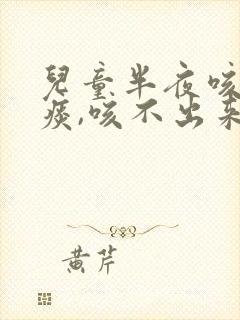 兒童半夜咳
痰,咳不出来
黄芹